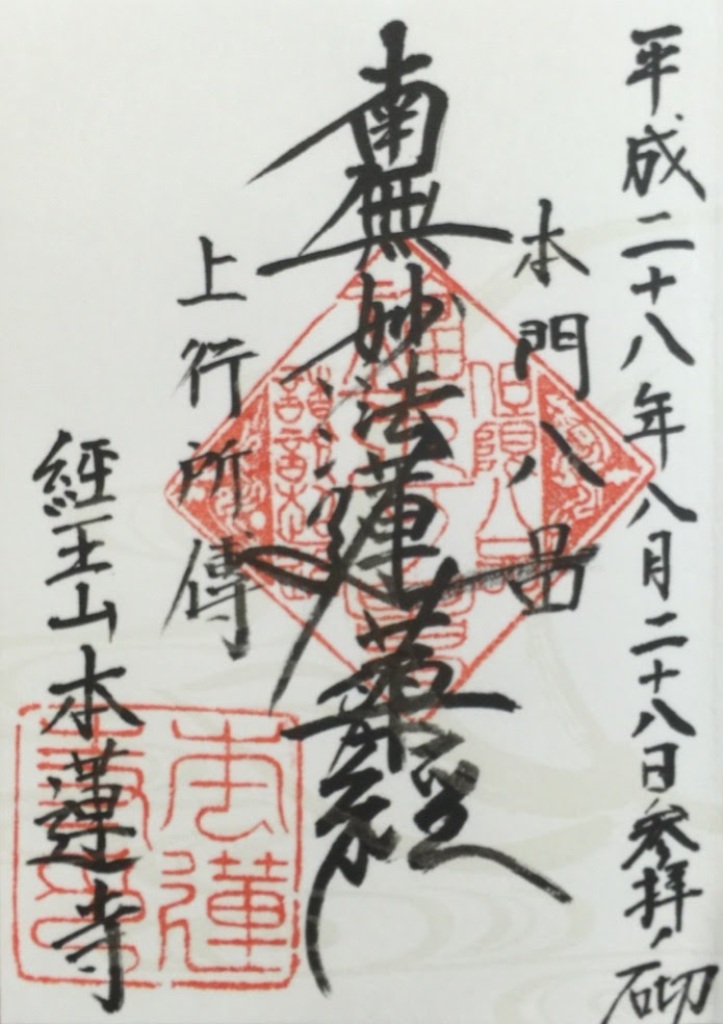 平成二十八年八月二十八日参拝ノ砌
本門八品
南無妙法蓮華経
上行所傳
経王山本蓮寺
本蓮